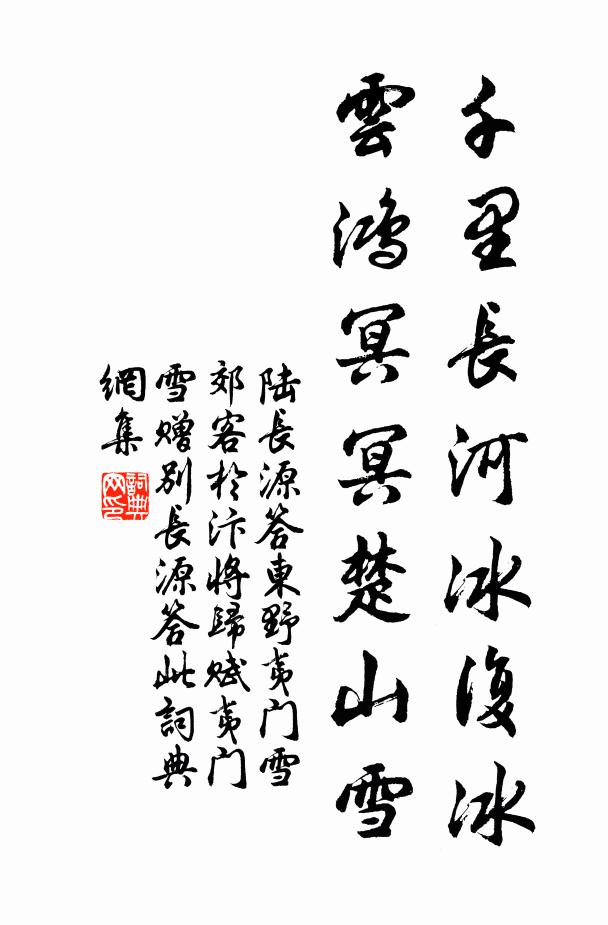 千里長河冰復冰
雲鴻冥冥楚山雪
陸長源答東野夷门雪
郊客於汴將歸賦夷门
雪贈别長源答此詞典
網集
詞典
网印